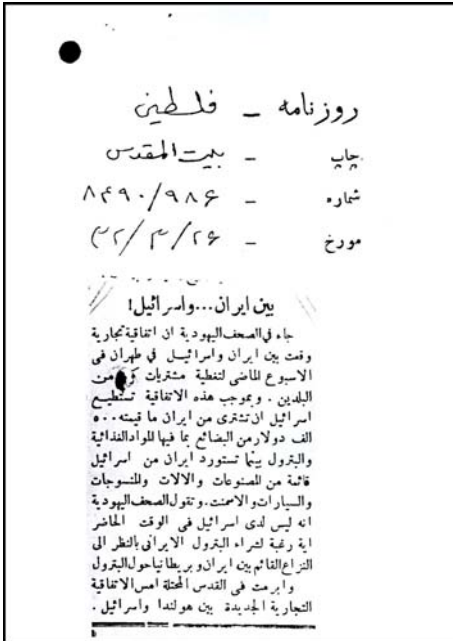 روزنامه - فلسطین
چاپ - بیت المقدس
شماره - ۸۴۹۰/۹۸۶
مورخ - ۳۲/۳/۲۶
بين ايران...واسرائيل!
جاء في الصحف اليهودية ان اتفاقية تجارية
وقعت بين ايران واسرائيل في طهران في
الاسبوع الماضي لتغطية مشتريات كل من
البلدين . وبموجب هذه الاتفاقية تستطيع
اسرائيل ان تشترى من ايران ما قيمته ٥٠٠
الف دولار من البضائع بما فيها المواد الغذائية
والبترول بينما تستورد ايران من اسرائيل
قائمة من المصنوعات والالات والمنسوجات
والسيارات والاسمنت. وتقول الصحف اليهودية
انه ليس لدى اسرائيل في الوقت الحاضر
اية رغبة لشراء البترول الايراني بالنظر الى
النزاع القائم بين ايران وبريطانيا حول البترول
وابرمت في القدس المحتلة امس الاتفاقية
التجارية الجديدة بين هولندا واسرائيل .